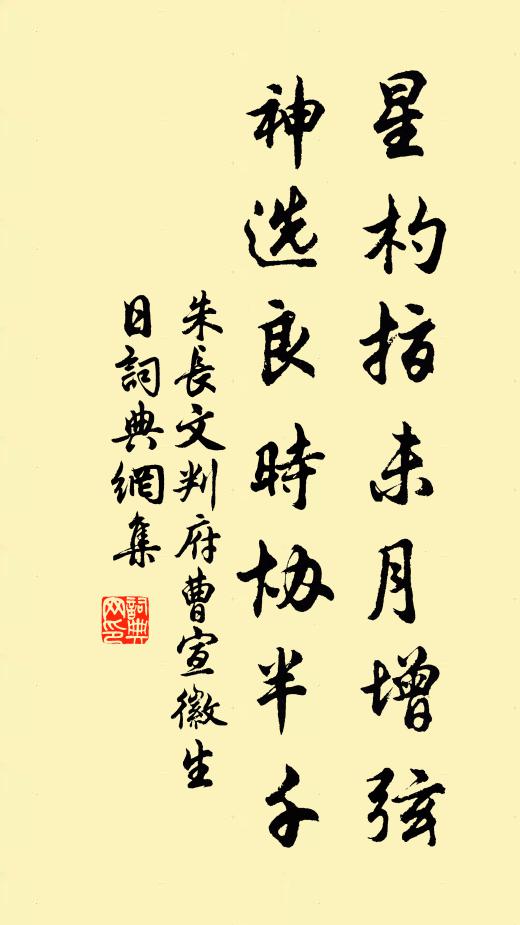 星杓指未月增弦
神选良時协半千
朱長文判府曹宣徽生
日詞典網集
詞典
网印